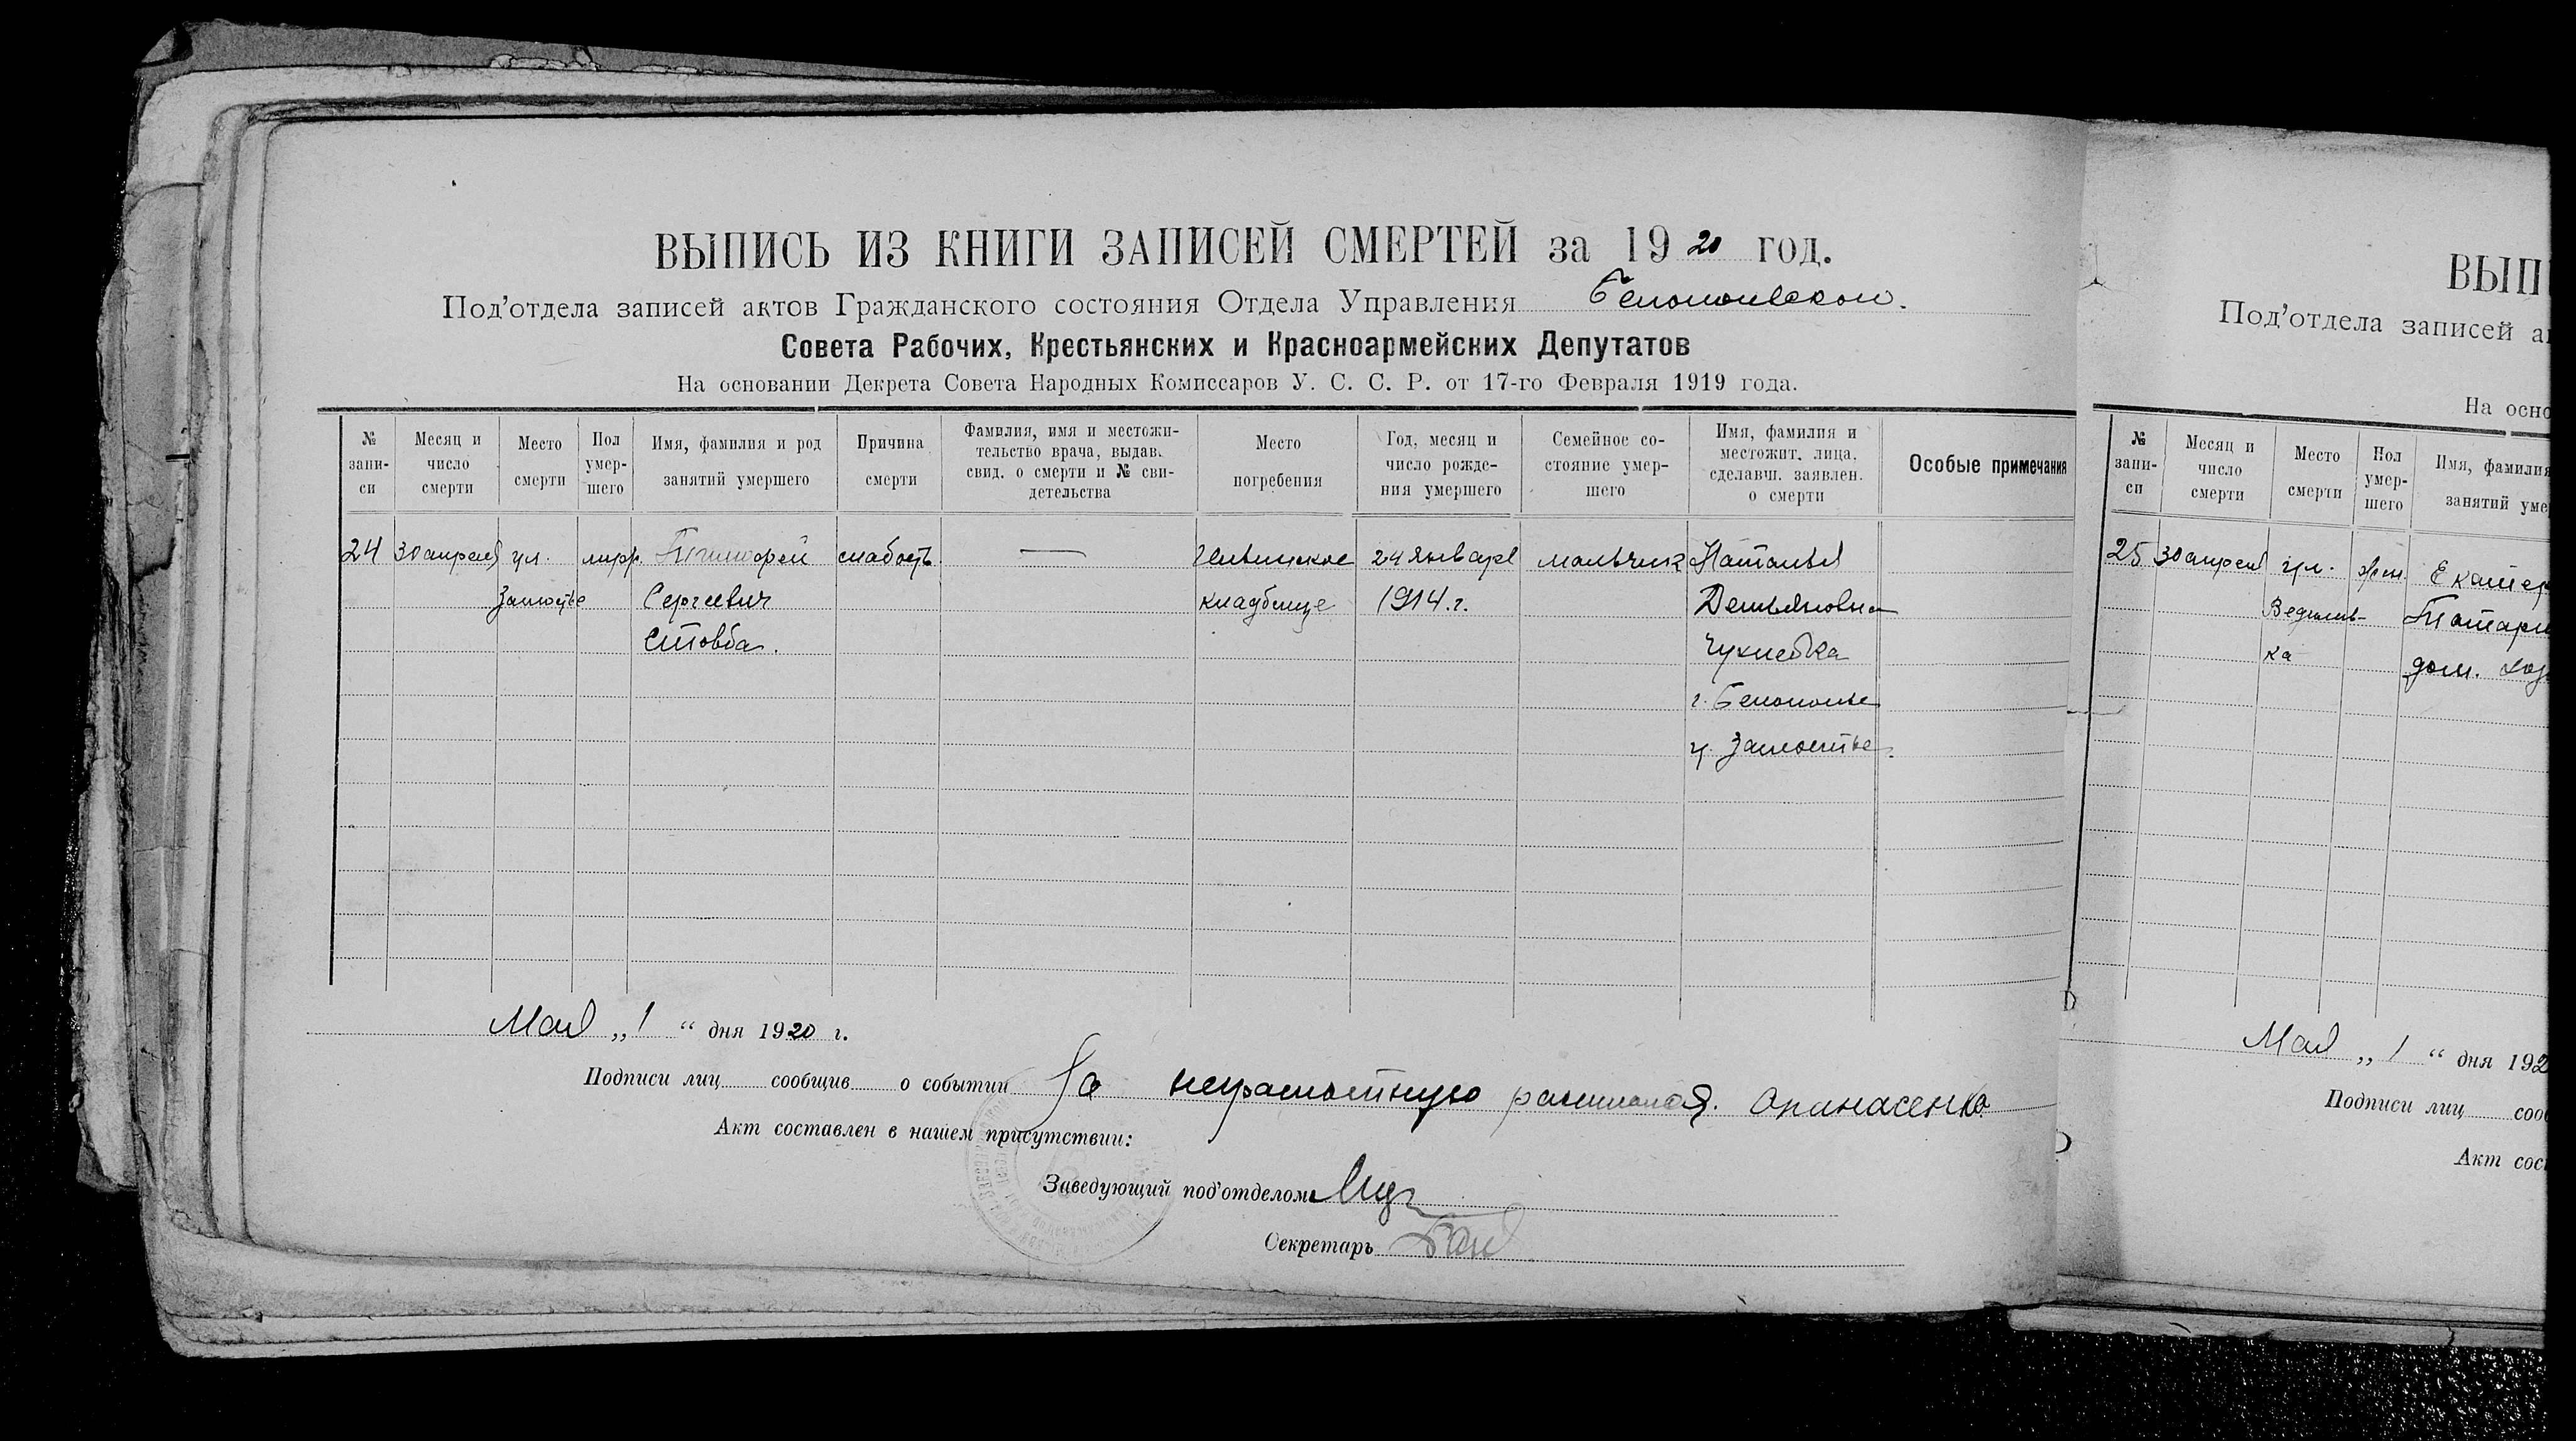 ВЫПИСЬ ИЗ КНИГИ ЗАПИСЕЙ СМЕРТЕЙ за 1920 год.
Под'отдела записей актов Гражданского состояния Отдела Управления Белопольском.
Совета Рабочих, Крестьянских и Красноармейских Депутатов
На основании Декрета Совета Народных Комиссаров У. С. С. Р. от 17-го Февраля 1919 года.
№ запи-си
Месяц и число смерти
Место смерти
Пол умер-шего
Имя, фамилия и род занятий умершего
Причина смерти
Фамилия, имя и местожи-тельство врача, выдав. свид. о смерти и № сви-детельства
Место погребения
Год, месяц и число рожде-ния умершего
Семейное со-стояние умер-шего
Имя, фамилия и местожит. лица, сделавш. заявлен. о смерти
Особые примечания
24
30 апреля
ул. Замостье
Тимофей
Сергеевич
Стовба.
слабость
кладбище
24 января
1914 г.
мальчик
Наталья
Демьяновна
г. Белополье
у. Замостье.
Мая „1“ дня 1920 г.
Подписи лиц сообщив о событии За неграмотную расписался. Опанасенко
Акт составлен в нашем присутствии:
Заведующий под'отделом
Секретарь
ВЫП
Под'отдела записей а
На осно
№ запи-си
Месяц и число смерти
Место смерти
Пол умер-шего
Имя, фамилия
занятий уме
25
30 апреля
ул.
жен.
Екатер
дом. хоз
Мая „1“ дня 192
Подписи лиц соо
Акт сос